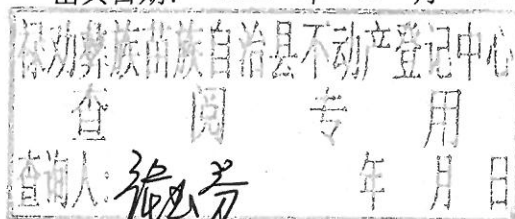 出具日期： 年 月
禄劝彝族苗族自治县不动产登记中心
查 阅 专 用
查询人： 年 月 日